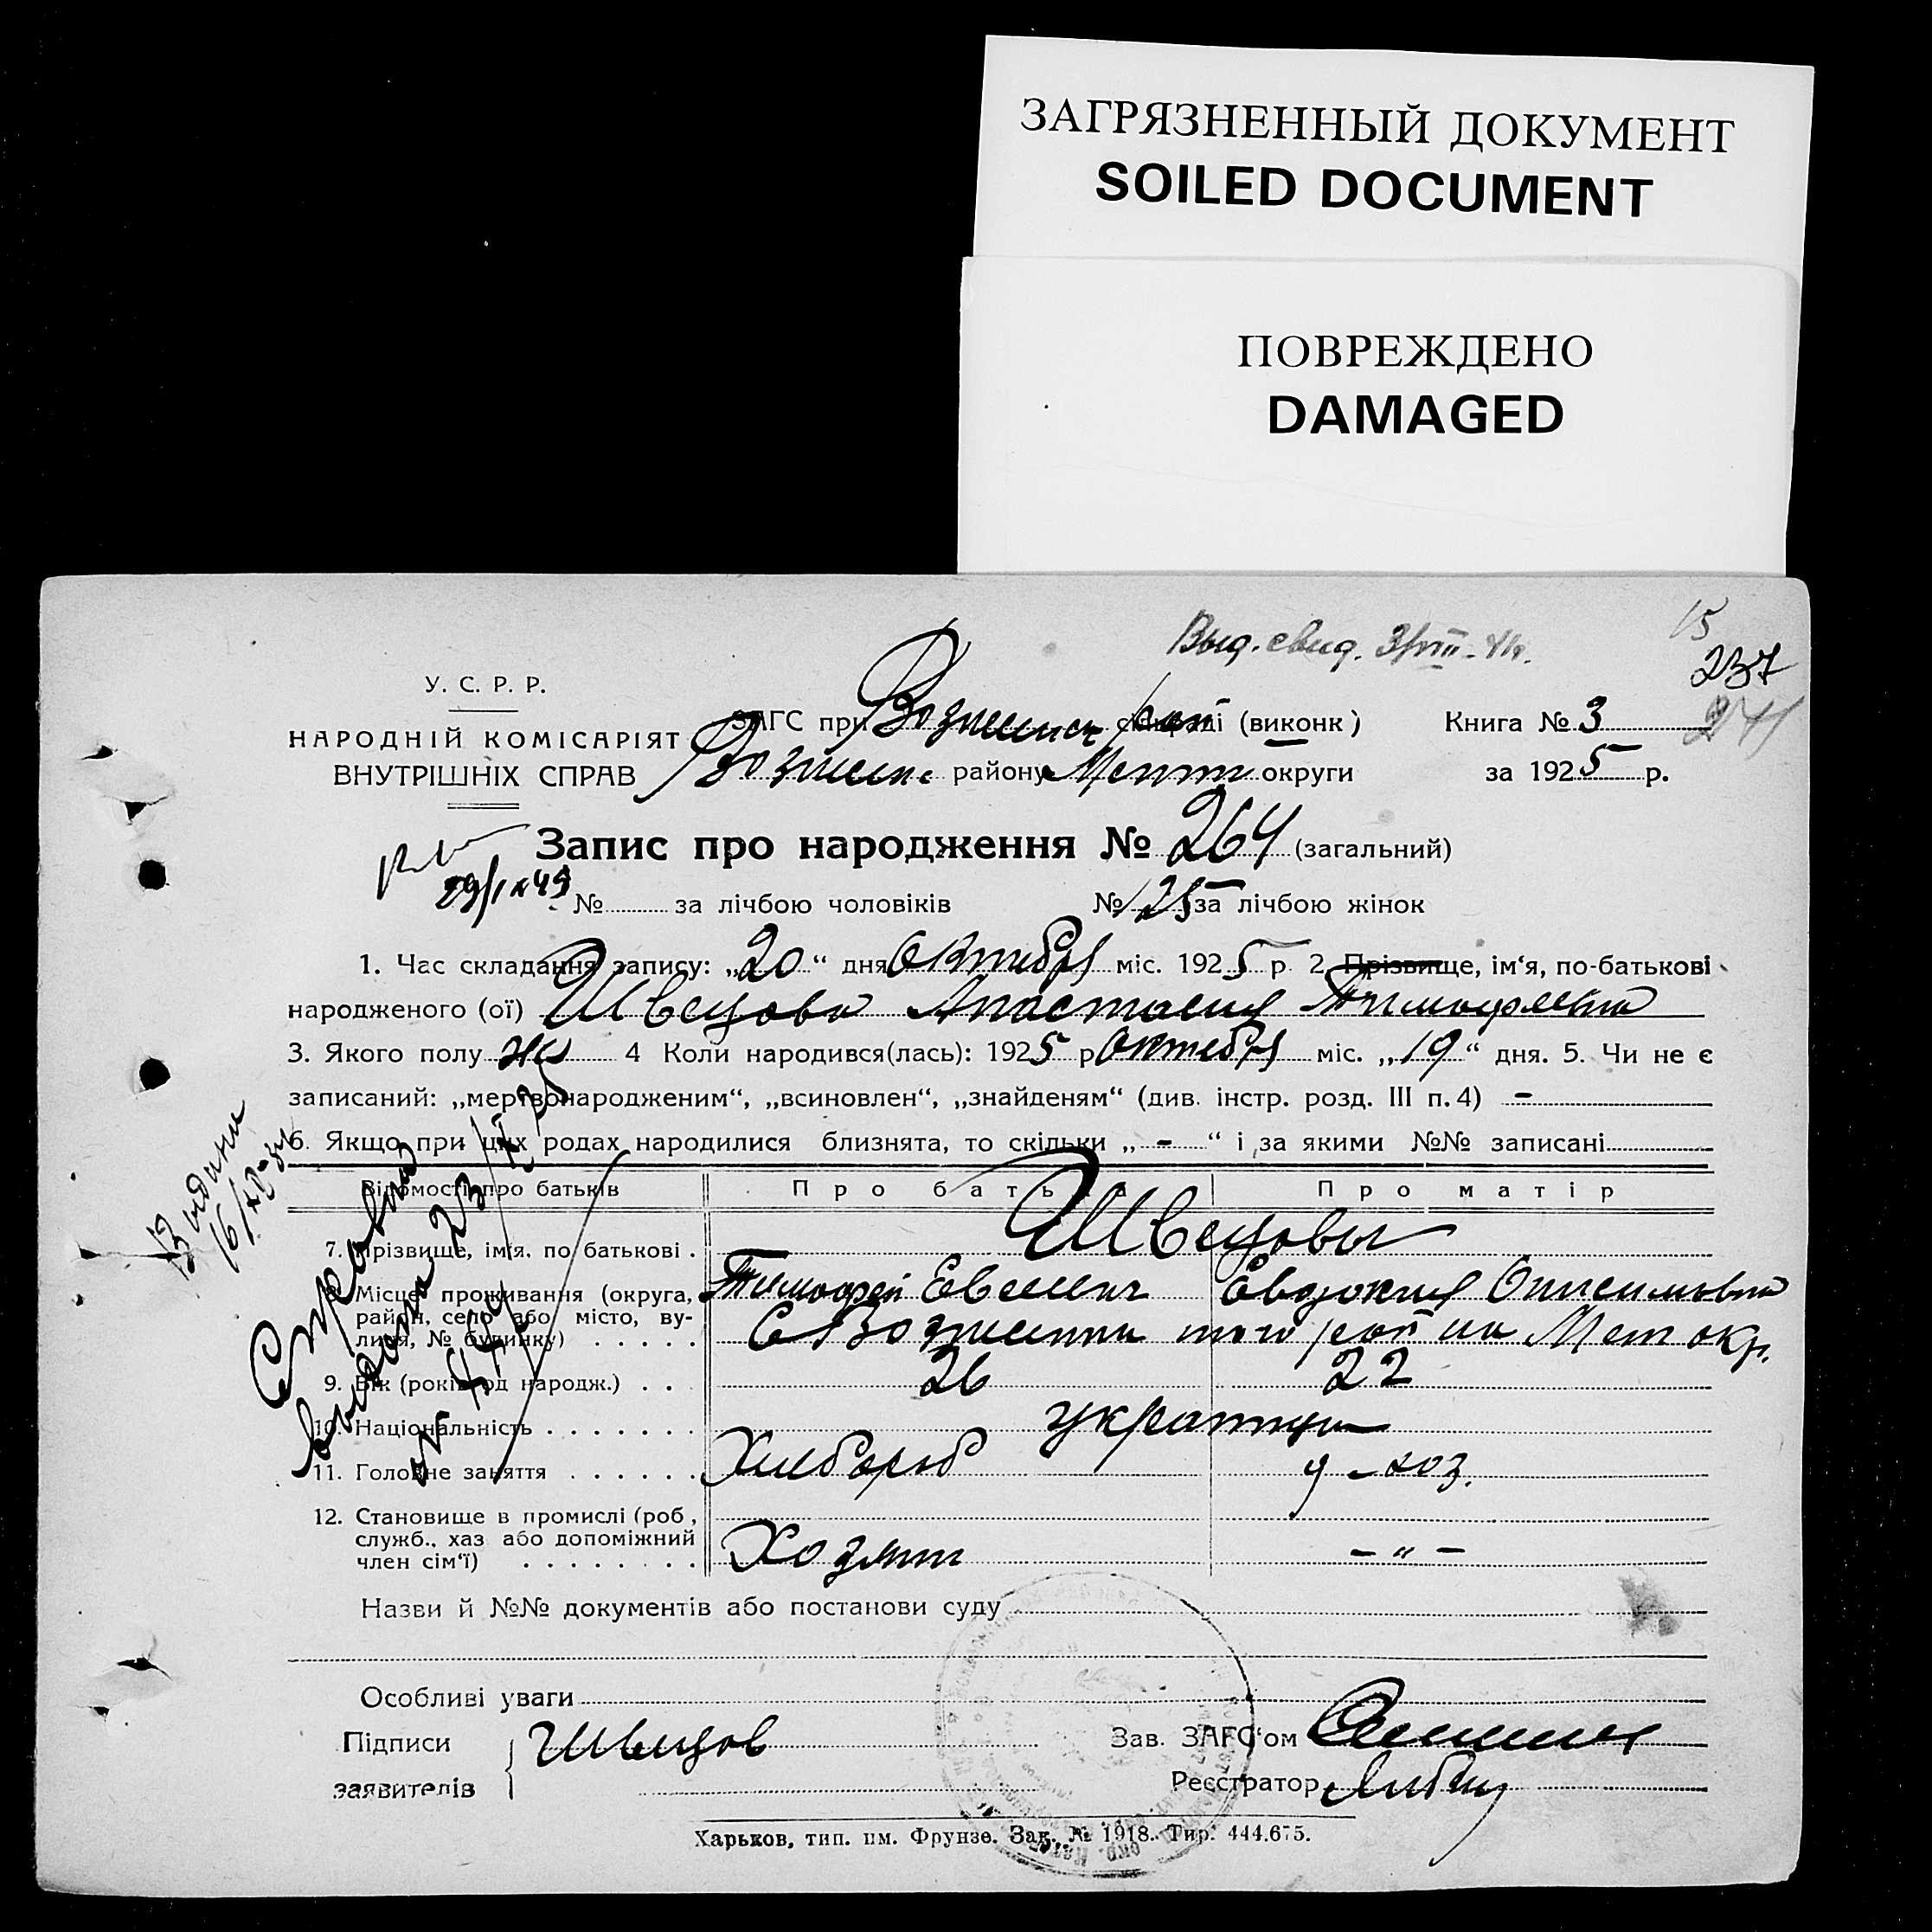 ЗАГРЯЗНЕННЫЙ ДОКУМЕНТ
SOILED DOCUMENT
ПОВРЕЖДЕНО
DAMAGED
15
Выд. свид. 3/VIII-41г.
237
241
У. С. Р. Р.
НАРОДНІЙ КОМІСАРІЯТ
ВНУТРІШНІХ СПРАВ
ЗАГС при Вознесенск (виконк) Книга № 3
району Мелит округи за 1925 р.
Запис про народження № 264 (загальний)
29/IX 49
№ за лічбою чоловіків № 125 за лічбою жінок
1. Час складання запису: „20“ дня Октября міс. 1925 р. 2. Прізвище, ім‘я, по-батькові
народженого (ої) Швецова Анастасия Тимофеевна
3. Якого полу ж 4 Коли народився(лась): 1925 р Октября міс. „19“ дня. 5. Чи не є
записаний: „мертвонародженим“, „всиновлен“, „знайденям“ (див. інстр. розд. III п. 4) -
6. Якщо при цих родах народилися близнята, то скільки „-“ і за якими №№ записані
Справка
выдана 23
Відомості про батьків Про батька Про матір
7. Прізвище, ім‘я, по батькові . Швецовы
Тимофей Евсеевич Евдокия Онисимовна
8. Місце проживання (округа, район, село або місто, вулиця, № будинку) С Вознесенка того района Мелит окр.
9. Вік (років од народж.) . . 26 22
10. Національність . . . . . . . украинцы
11. Головне заняття . . . . . . Хлебороб д-хоз.
12. Становище в промислі (роб.,
служб., хаз або допоміжний
член сім‘ї) . . . . . . . . Хозяин - „ -
Назви й №№ документів або постанови суду
Особливі уваги
Підписи Швецов Зав. ЗАГС‘ом
заявителів Реєстратор
Харьков, тип. им. Фрунзе. Зак. № 1918. Тир. 444.675.